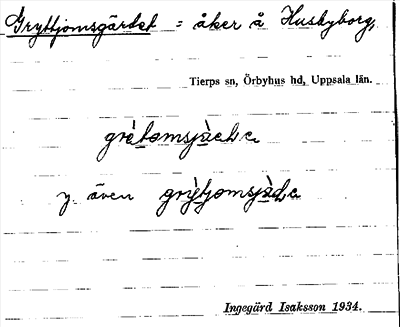 Gryttjomsgärdet = åker å Husbyborg,
Tierps sn, Örbyhus hd, Uppsala län.
grètomsjàclc
y. även grỳtjomsjàdc
Ingegärd Isaksson 1934.